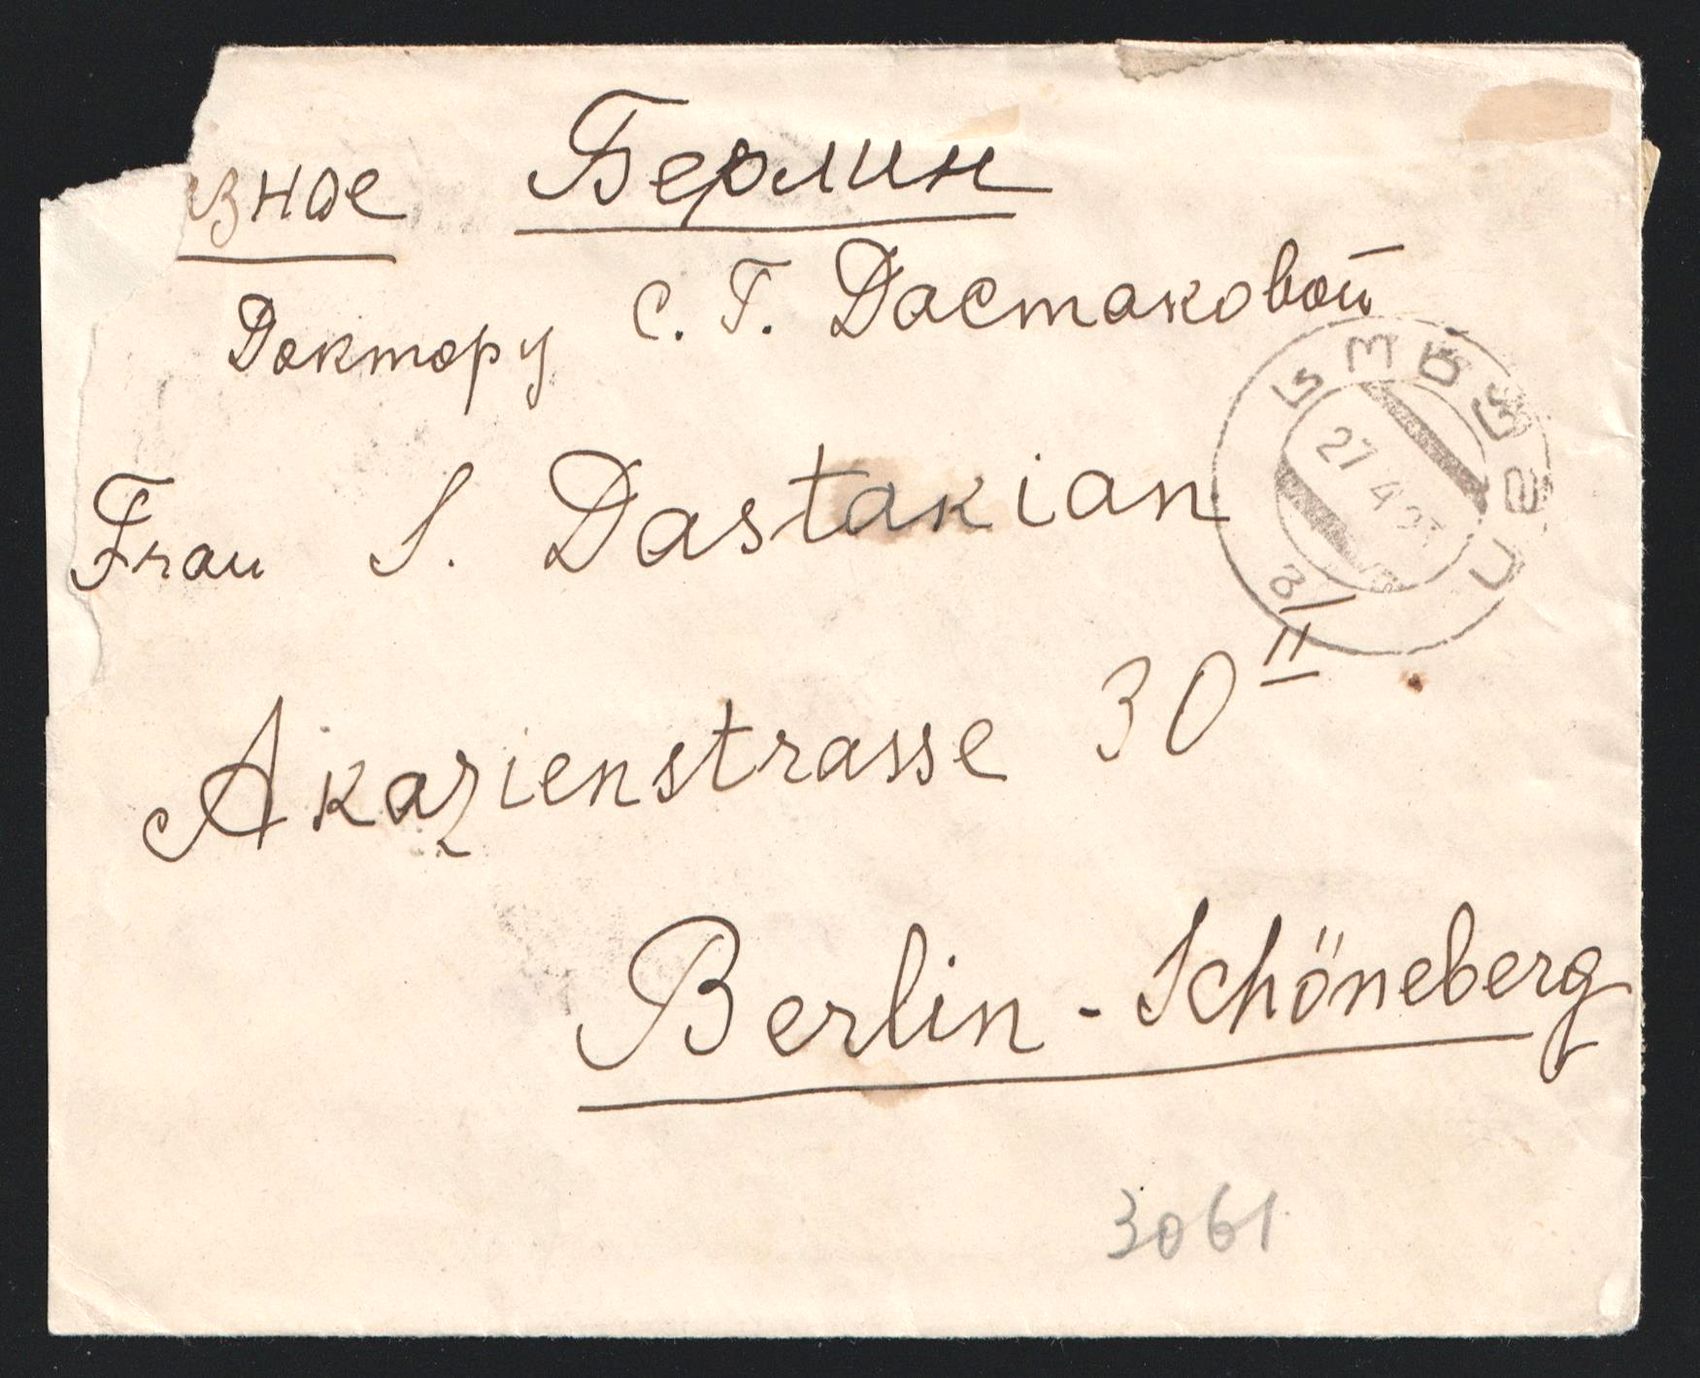 зное Берлин
Доктору С. Г. Дастаковой
Frau S. Dastakian
27 4
Akazienstrasse 30 II
Berlin-Schöneberg
3061